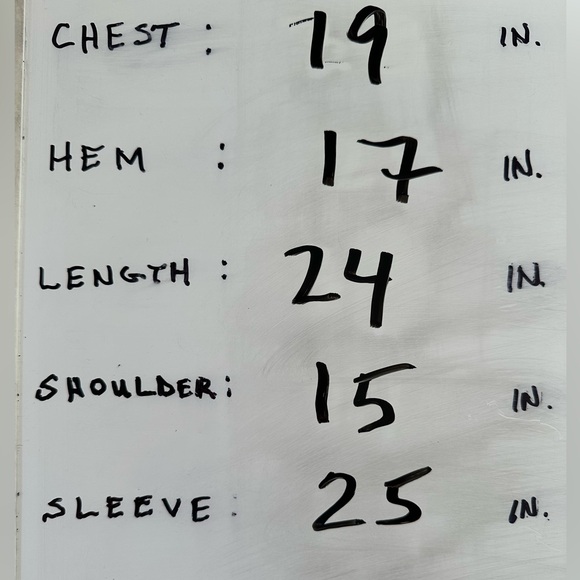 CHEST: 19 IN.
HEM : 17 IN.
LENGTH : 24 IN.
SHOULDER: 15 IN.
SLEEVE: 25 IN.